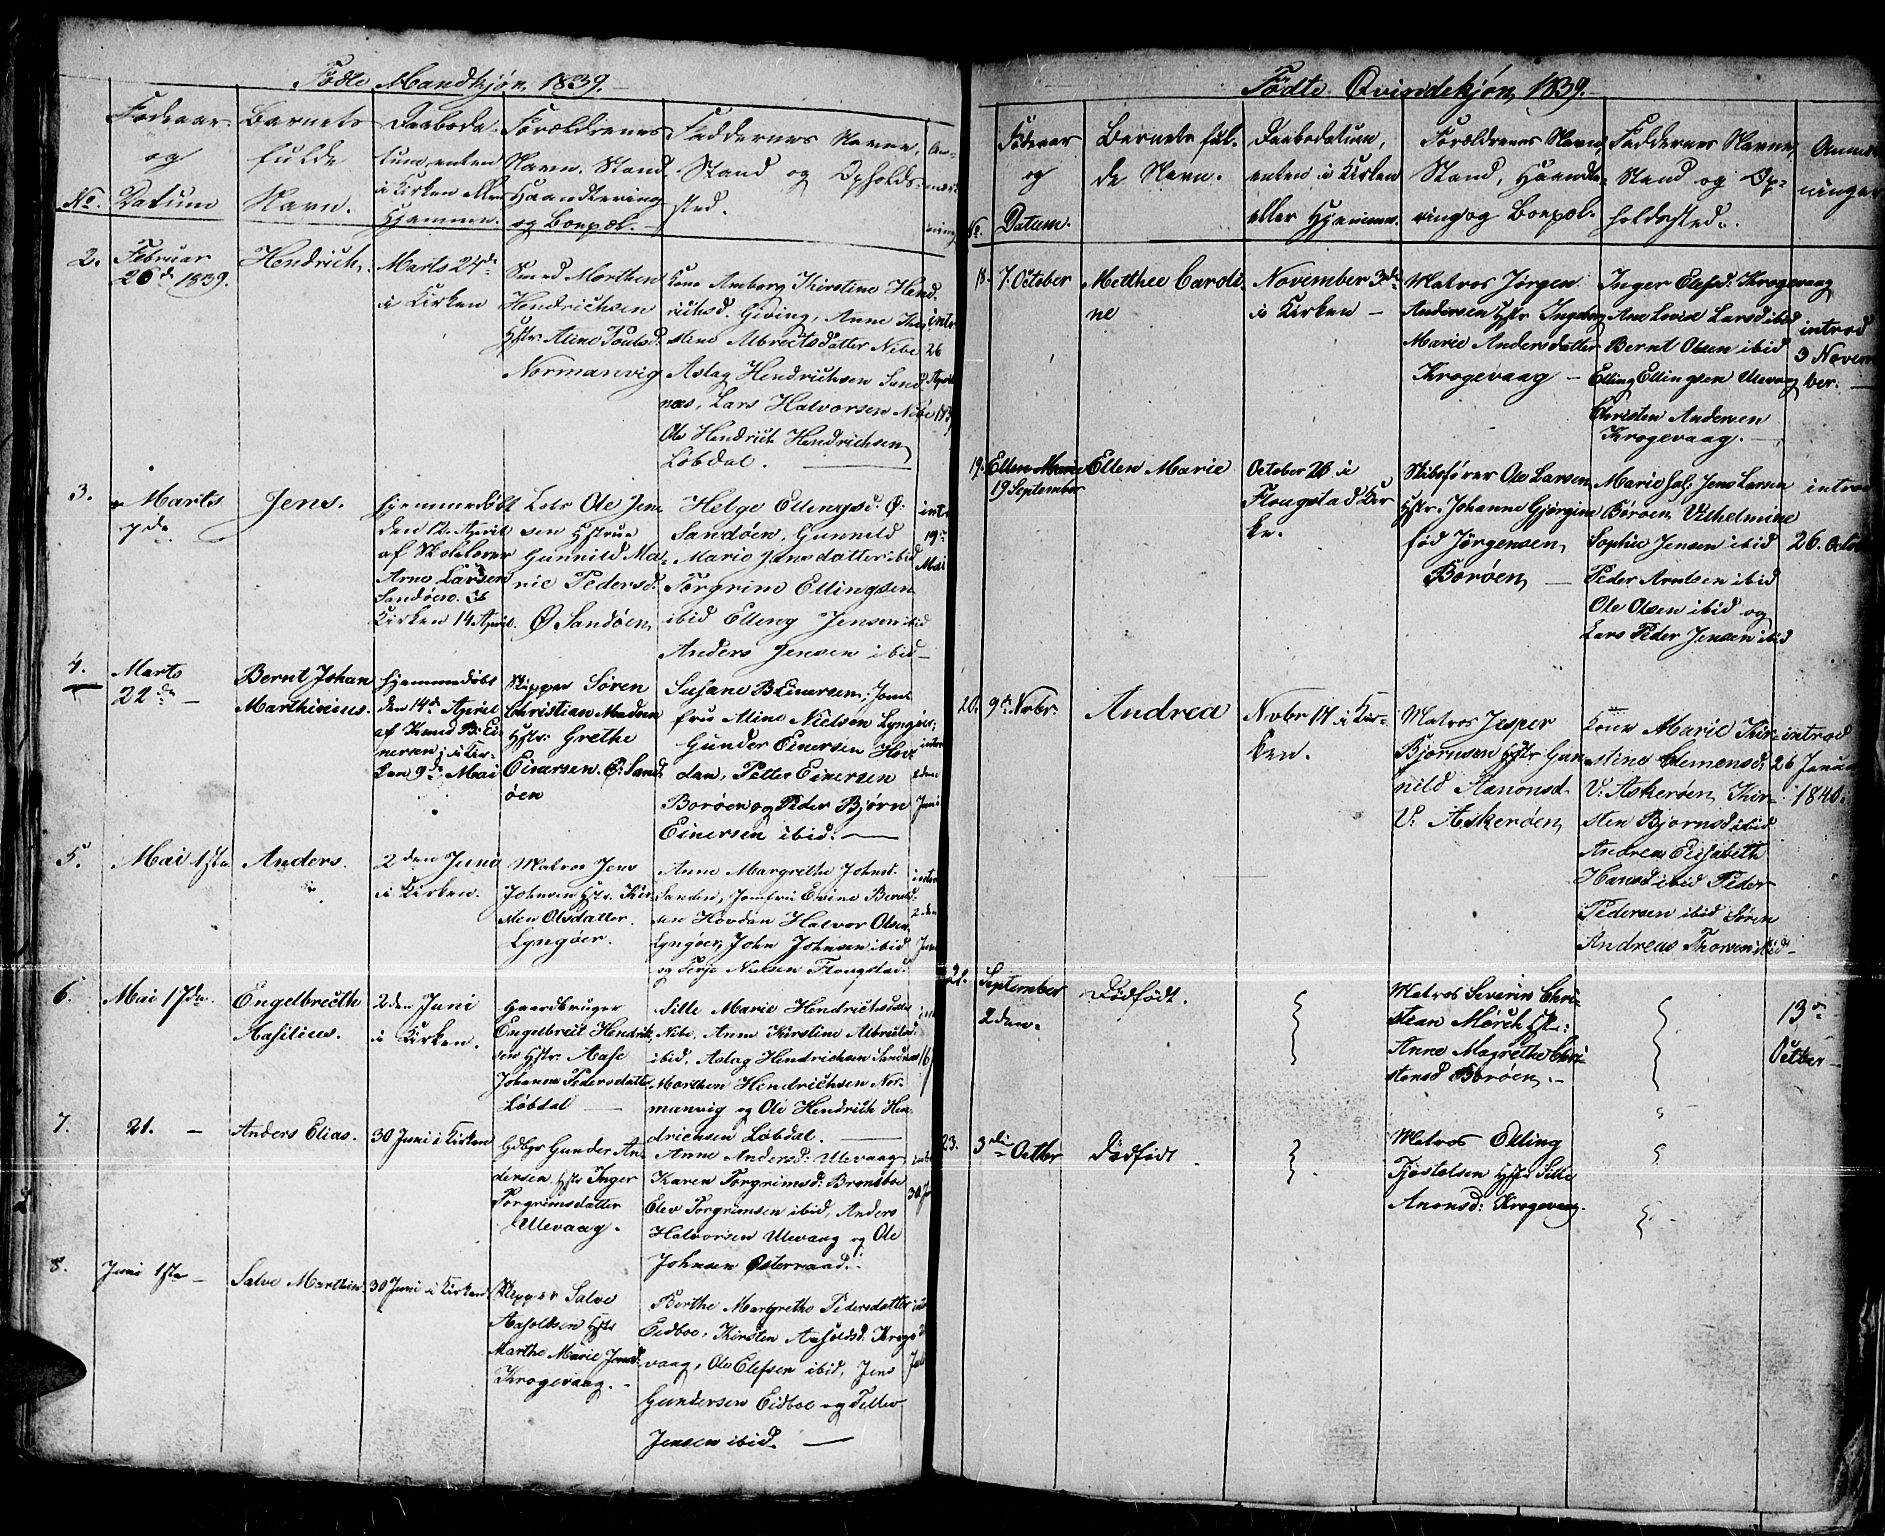 Fødte Mandkjøn, 1839.
No.
Fødeaar og Datum
Barnets fulde Navn.
Daabsdatum, enten i Kirken eller Hjemme.
Forældrenes Navn, Stand, Haandtering og Boepæl.
Faddernes Navne, Stand og Opholdssted.
2.
Februar
26de 1839.
Hendrich.
Marts 24de
i Kirken
Smed Morthen
Hendrichsen
Hstr: Aline Poulsd.
Normanvig
Kone Amborg Kirstine Hend
richsd. Giving, Anne Kir
stine Albretsdatter Nibe
Aslag Hendrichsen Sand
næs, Lars Halvorsen Nibe
Ole Hendrich Hendrichsen
Løbdal.
intr
26
April
1839
3.
Marts
7de
Jens.
hjemmedøbt
den 12. April
af Skolelærer
Arne Larsen
Sandøen. I
Kirken 14 April
Lots Ole Jen
sen Hstrue
Gunnild Ma-
rie Pedersd.
Ø Sandøen
Helge Ellengsd: Ø.
Sandøen, Gunnild
Marie Jensdatter ibid
Torgrim Ellingsen
ibid Elleng Jensen ibid
Anders Jensen ibid
intr
19de
Mai
4.
Marts
22de
Bernt Johan
Marthinius.
hjemmedøbt
den 14de April
af Knud B. Ei
nersen; i Kir-
ken 9de Mai
Skipper Søren
Christian Madsen
Hstr: Grethe
Einersen. Ø: Sand
øen
Susane B Einersen; Jom
fru Aline Nielsen Lyngøer;
Gunder Einersen Hov
dan, Petter Einersen
Borøen og Peder Bjørn
Einersen ibid.
intro
2den
Juni
5.
Mai 1ste
Anders.
2den Juni
i Kirken.
Matros Jens
Johnsen Hstr. Kir
sten Olsdatter.
Lyngøer.
Anne Margrethe Johnsd.
Sanden, Jomfru Evine Berent
sen Hovdan Halvor Olsen
Lyngøer, John Johnsen ibid
og Terje Nielsen Flougstad.
intro
2den
Juni
6.
Mai 17de.
Engelbreth
Aasilius.
2den Juni
i Kirken.
Gaardbruger
Engelbret Hendrik
sen Hstr: Aase
Johanne Pedersdatter
Løbdal
Sille Marie Hendrichsdatter
Nibe, Anne Kirstine Albretsd.
ibid, Aslag Hendrichsen Sandnæs
Morthen Hendrichsen Nor-
manvig og Ole Hendrich Hen
drichsen Løbdal.
7.
21. —
Anders Elias.
30 Juni i Kirken
Gdbgr Gunder An
dersen Hstr Inger
Torgrimsdatter
Ullevaag.
Anne Andersd: Ullevaag
Karen Torgrimsd: Brensboe
Elev Torgrimsen ibid, Anders
Halvorsen Ulevaag og Ole
Johnsen Østeraad.
8.
Juni 1ste
Salve Marthin.
30 Juni i Kirken
Skipper Salve
Aasolksen Hstr
Marthe Marie Jensd.
Krogevaag.
Berthe Margrethe Pedersdatter
Eidboe, Kirsten Aasoldsd. Kroge
vaag, Ole Elefsen ibid, Jens
Gundersen Eidboe og Petter
Jensen ibid.
Fødte Qvindekjøn, 1839.
No.
Fødeaar og Datum.
Barnets fulde Navn.
Daabsdatum, enten i Kirken eller Hjemme.
Forældrenes Navn, Stand, Haandtering og Boepæl.
Faddernes Navne, Stand og Opholdssted.
18.
7. October
Metthee Caroli
ne
November 3de
i Kirken
Matros Jørgen
Andersen Hstr Ingeborg
Marie Andersdatter
Krogevaag
Inger Elefsd: Krogevaag
Ane Lovise Larsd ibid
Bernt Olsen ibid
Elling Ellingsen Ulevaag
Christen Andersen
Krogevaag.
introd
3 Novem
ber.
19.
Ellen Marie
19 September
Ellen Marie
October 26 i
Flougstad Kir
ke.
Skibsfører Ole Larsen
Hstr. Johanne Gjørgine
fød Jørgensen,
Borøen
Marie Jens Larsen
Borøen, Vilhelmine
Sophie Jensen ibid
Peder Arntsen ibid
Ole Olsen ibid og
Lars Peder Jensen ibid
introd
26. Octo
20.
9de Novbr.
Andrea
Novbr 17 i Kir-
ken.
Matros Jesper
Bjørnsen Hstr Gun
nild Aanonsd.
V: Askerøen
Kone Marie Kir-
stine Clemensd:
V: Askerøen, Kir-
sten Bjørnsd ibid
Andrea Elisabeth
Hansd ibid Peder
Pedersen ibid Søren
Andreas Thorsen ibid
introd
26 Janua
1840.
September
2den.
Dødfødt.
Matros Severin Chri
stian Mørch Hstr:
Anne Magrethe Chri-
stensd Borøen.
13de
Octber
23.
3die Octber
Dødfødt
Matros Elling
Tjøstelsen Hstr Sille
Anonsd: Krogevaag.